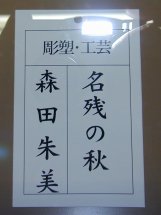 彫塑・工芸
名残の秋
森田朱美